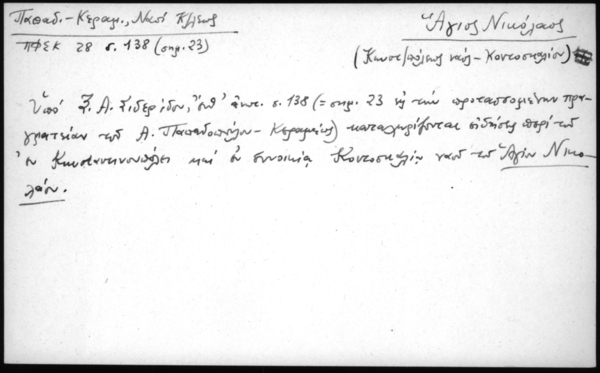 Παπαδ.-Κεραμ., Ναοί Κ/λεως
ΠΦΣΚ 28 σ. 138 (σημ. 23)
Ἅγιος Νικόλαος
(Κωνστ/πόλεως ναός - Κοντοσκαλίου)
Ὑπό Ξ. Α. Σιδερίδου, ἔνθ' ἀνωτ. σ. 138 (= σημ. 23 εἰς τήν προτασσομένην πρα-
γματείαν τοῦ Α. Παπαδοπούλου - Κεραμέως) καταχωρίζονται εἰδήσεις περί τοῦ
ἐν Κωνσταντινουπόλει καί ἐν συνοικίᾳ Κοντοσκαλίῳ ναοῦ τοῦ Ἁγίου Νικο-
λάου.